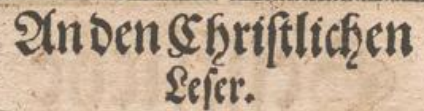 An den Christlichen
Leser.